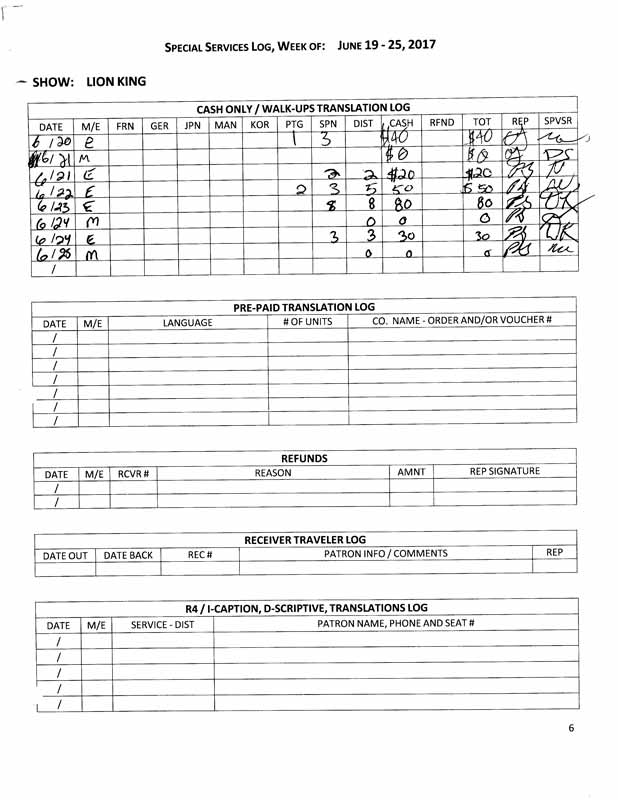 SPECIAL SERVICES LOG, WEEK OF: JUNE 19 - 25, 2017
SHOW: LION KING
CASH ONLY / WALK-UPS TRANSLATION LOG
DATE M/E FRN GER JPN MAN KOR PTG SPN DIST CASH RFND TOT REP SPVSR
6/20 e 1 3 $40 $40
6/21 M $0 $0 DS
6/21 E 2 2 $20 $20
6/22 E 2 3 5 50 $50
6/23 E 8 8 80 80
6/24 M 0 0 0
6/24 E 3 3 30 30
6/25 M 0 0 0
/
PRE-PAID TRANSLATION LOG
DATE M/E LANGUAGE # OF UNITS CO. NAME - ORDER AND/OR VOUCHER #
/
/
/
/
/
/
/
REFUNDS
DATE M/E RCVR # REASON AMNT REP SIGNATURE
/
/
RECEIVER TRAVELER LOG
DATE OUT DATE BACK REC # PATRON INFO / COMMENTS REP
R4 / I-CAPTION, D-SCRIPTIVE, TRANSLATIONS LOG
DATE M/E SERVICE - DIST PATRON NAME, PHONE AND SEAT #
/
/
/
/
/
6